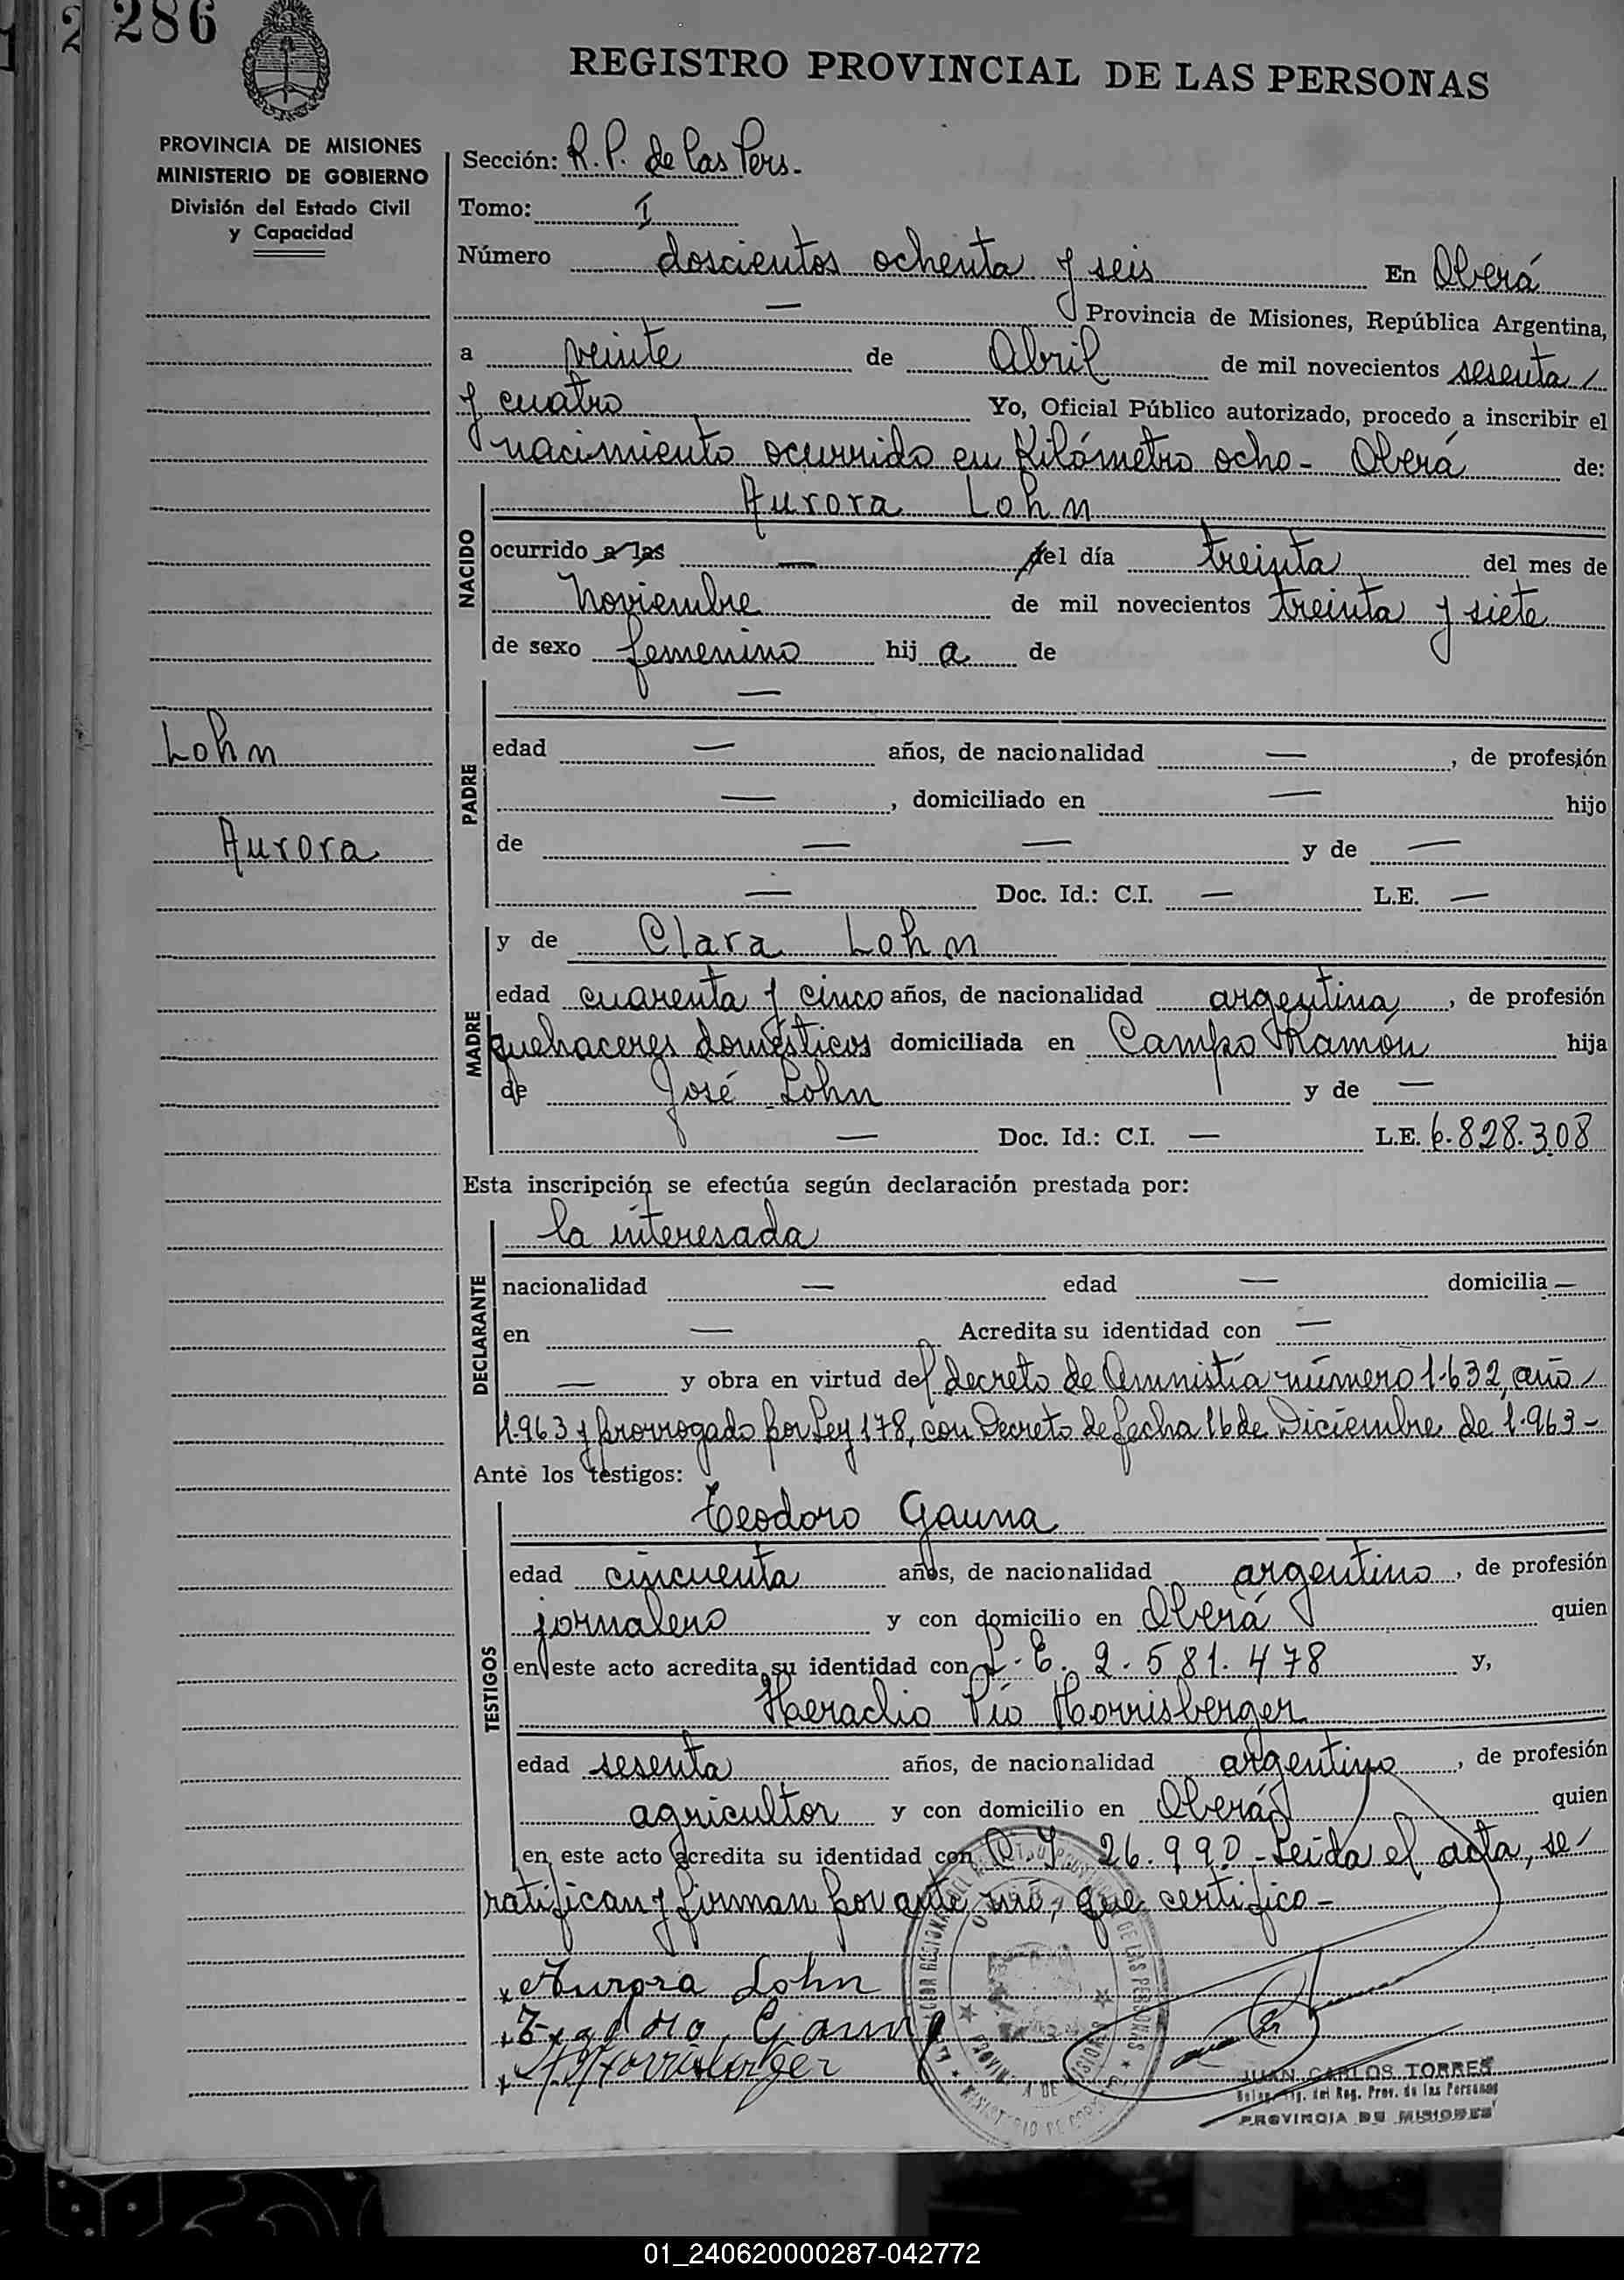 286
REGISTRO PROVINCIAL DE LAS PERSONAS
PROVINCIA DE MISIONES
MINISTERIO DE GOBIERNO
División del Estado Civil
y Capacidad
Sección: R. P. de las Pers.
Tomo: I
Número doscientos ochenta y seis En Oberá
— Provincia de Misiones, República Argentina,
a veinte de Abril de mil novecientos sesenta
y cuatro Yo, Oficial Público autorizado, procedo a inscribir el
nacimiento ocurrido en Kilómetro ocho - Oberá de:
NACIDO
Aurora Lohn
ocurrido a las — del día treinta del mes de
Noviembre de mil novecientos treinta y siete
de sexo femenino hij a de
Lohn
Aurora
PADRE
—
edad — años, de nacionalidad —, de profesión
—, domiciliado en — hijo
de — — y de —
— Doc. Id.: C.I. — L.E. —
MADRE
y de Clara Lohn
edad cuarenta y cinco años, de nacionalidad argentina, de profesión
quehaceres domésticos domiciliada en Campo Ramón hija
de José Lohn y de —
— Doc. Id.: C.I. — L.E. 6.828.308
Esta inscripción se efectúa según declaración prestada por:
DECLARANTE
la interesada
nacionalidad — edad — domicilia —
en — Acredita su identidad con —
— y obra en virtud del decreto de Amnistía número 1.632, año
1.963 y prorrogado por Ley 178, con Decreto de fecha 16 de Diciembre de 1.963 -
Ante los testigos:
TESTIGOS
Teodoro Gauna
edad cincuenta años, de nacionalidad argentino, de profesión
jornalero y con domicilio en Oberá quien
en este acto acredita su identidad con L. E. 2.581.478 y,
Heraclio Pío Horrisberger
edad sesenta años, de nacionalidad argentino, de profesión
agricultor y con domicilio en Oberá quien
en este acto acredita su identidad con C. I. 26.990 - Leída el acta, se
ratifican y firman por ante mí, que certifico -
x Aurora Lohn
x Teodoro Gauna
x H Horrisberger
JUAN CARLOS TORRES
del Reg. Prov. de las Personas
PROVINCIA DE MISIONES
01_240620000287-042772